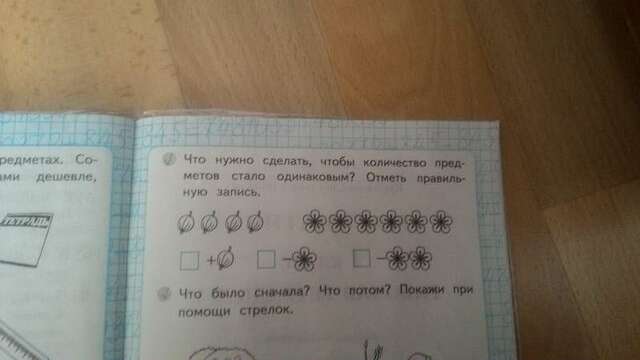 редметах. Со-
ами дешевле,
Что нужно сделать, чтобы количество пред-
метов стало одинаковым? Отметь правиль-
ную запись.
+ - -
Что было сначала? Что потом? Покажи при
помощи стрелок.